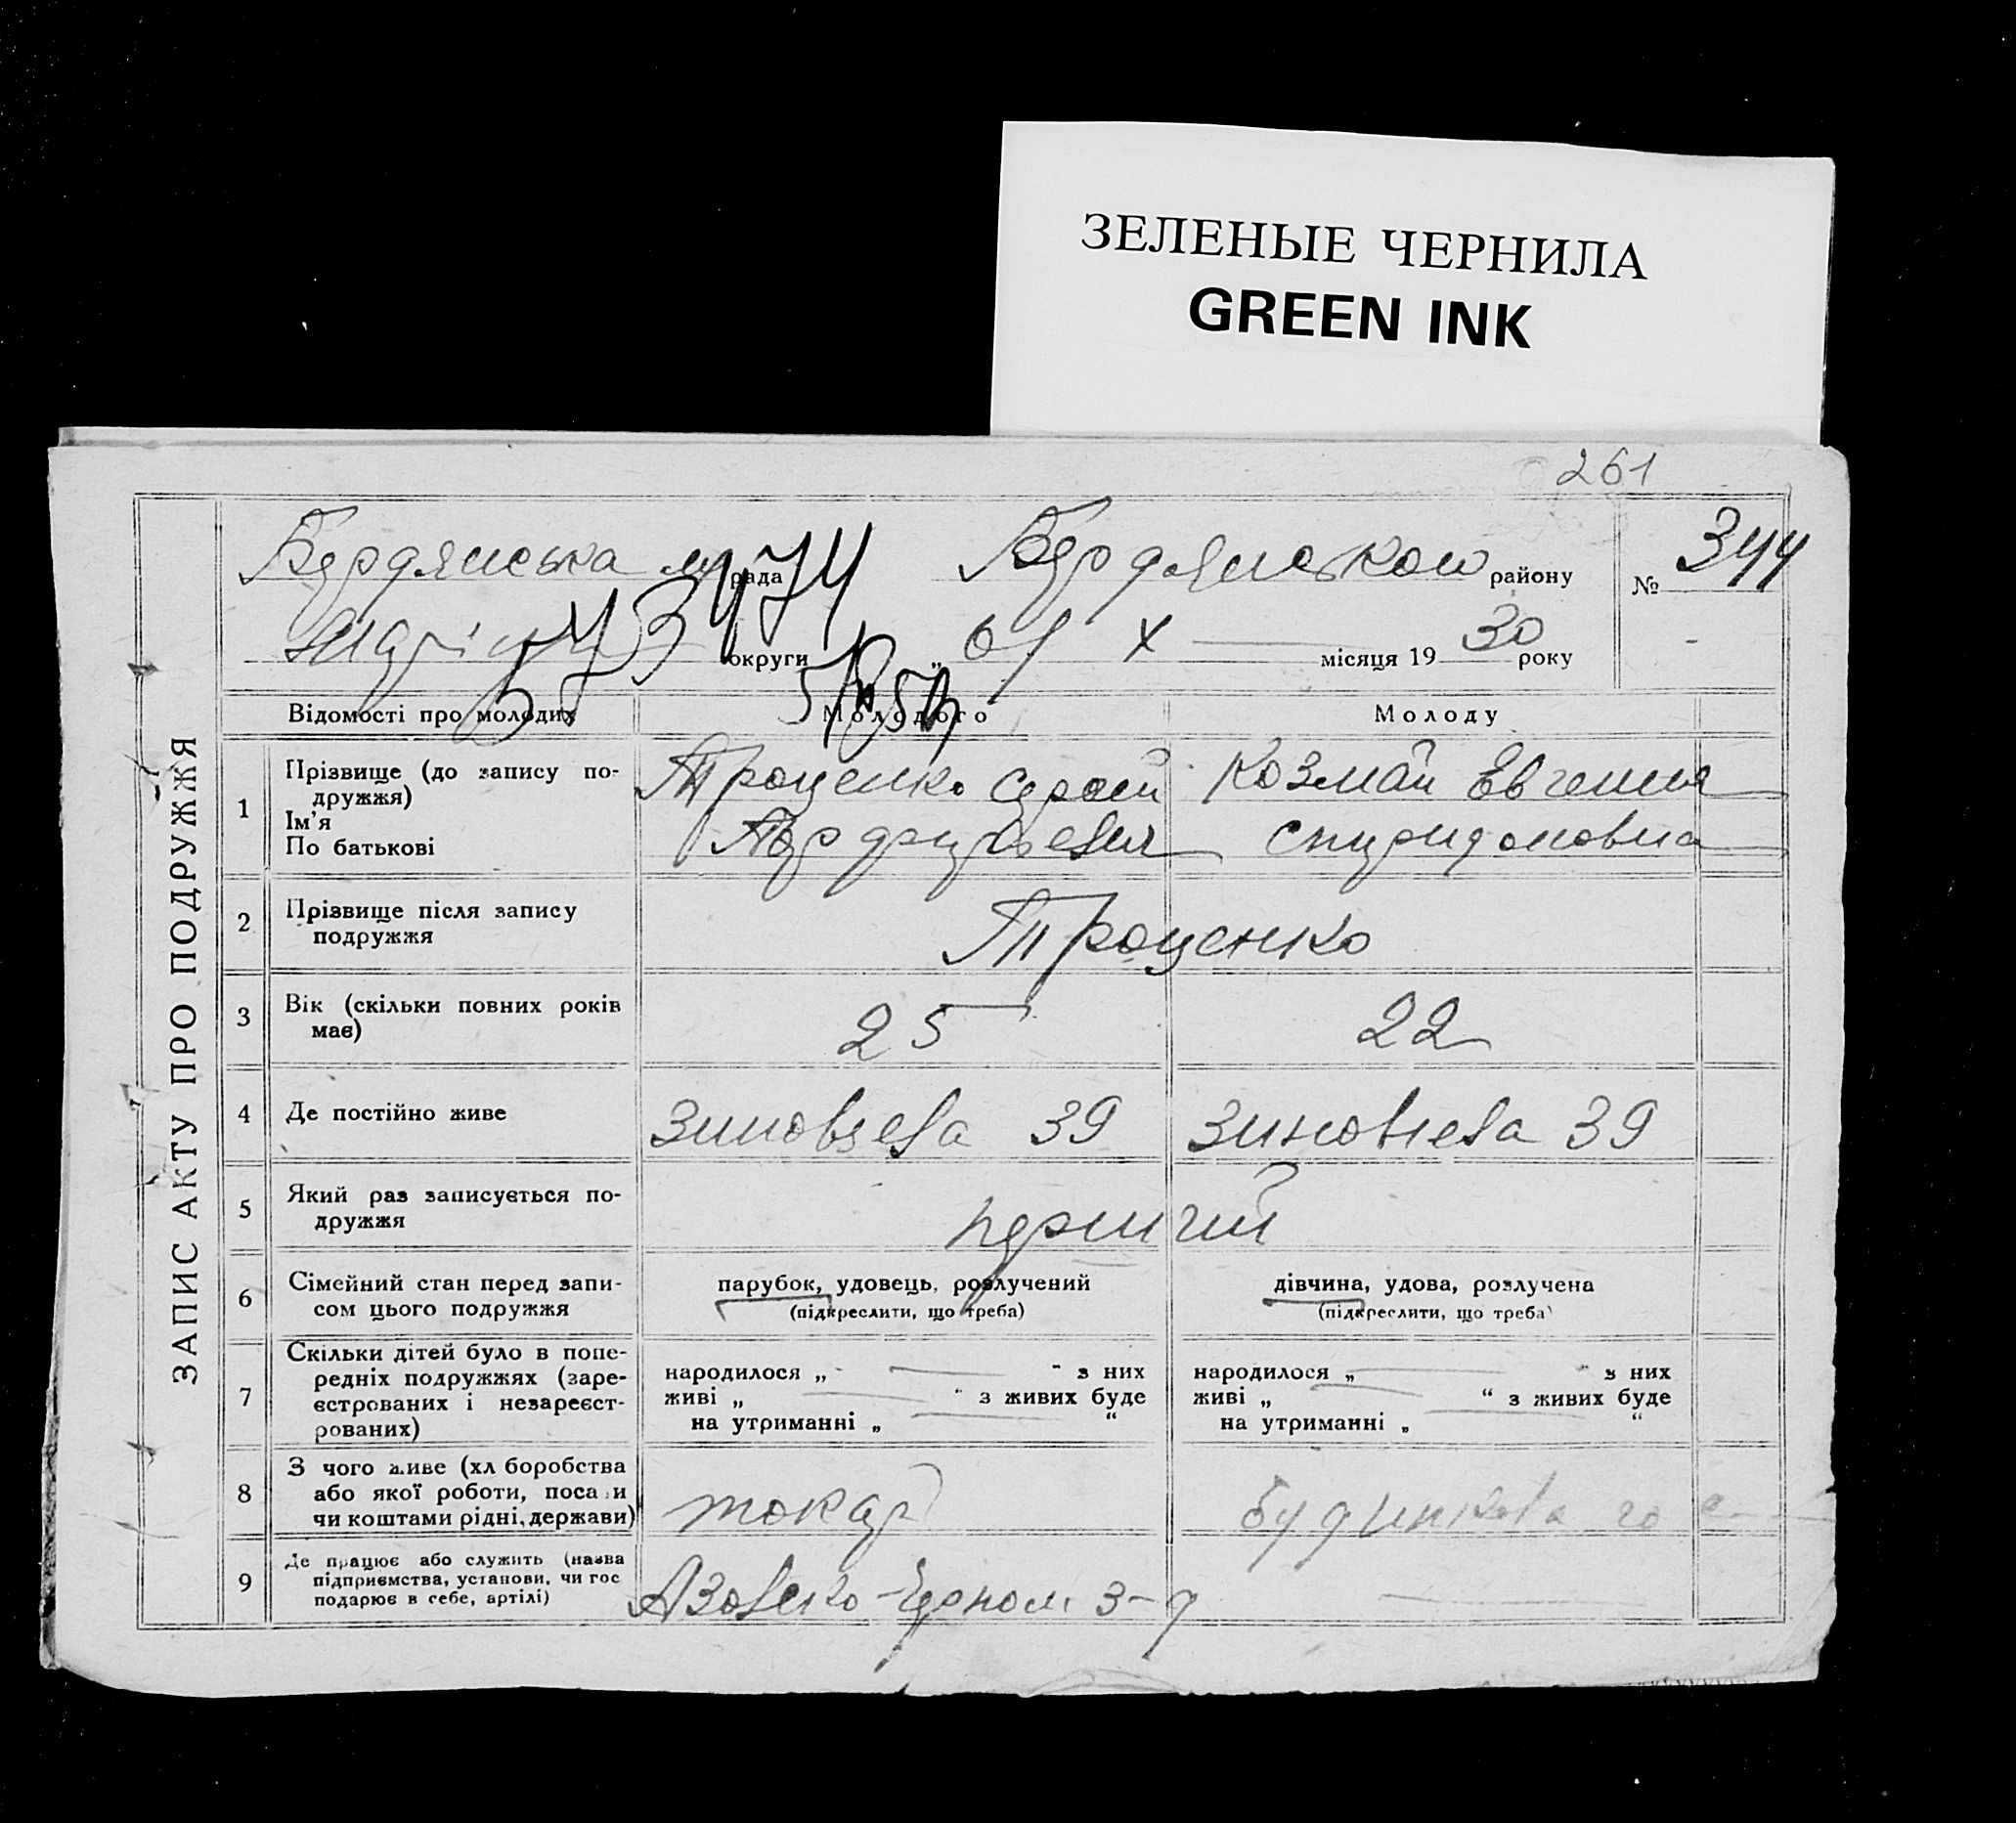 ЗЕЛЕНЫЕ ЧЕРНИЛА
GREEN INK
261
ЗАПИС АКТУ ПРО ПОДРУЖЖЯ
Бердянська м рада Бердянської району № 344
округи „ 01 X місяця 19 30 року
Відомості про молодих Молодого Молоду
1 Прізвище (до запису по-
дружжя)
Ім'я
По батькові
Троценко Сергій
Козмай Евгения
Спиридоновна
2 Прізвище після запису
подружжя
Троценко
3 Вік (скільки повних років
має)
25 22
4 Де постійно живе Зиновьева 39 Зиновьева 39
5 Який раз записується по-
дружжя
перший
6 Сімейний стан перед запи-
сом цього подружжя
парубок, удовець, розлучений
(підкреслити, що треба)
дівчина, удова, розлучена
(підкреслити, що треба)
7 Скільки дітей було в попе-
редніх подружжях (заре-
єстрованих і незареєст-
рованих)
народилося „ “ з них
живі „ “ з живих буде
на утриманні „ “
народилося „ “ з них
живі „ “ з живих буде
на утриманні „ “
8 З чого живе (хліборобства
або якої роботи, посади
чи коштами рідні, держави)
токар
9 Де працює або служить (назва
підприємства, установи, чи гос
подарює в себе, артілі)
Азовско-Черном. з-д